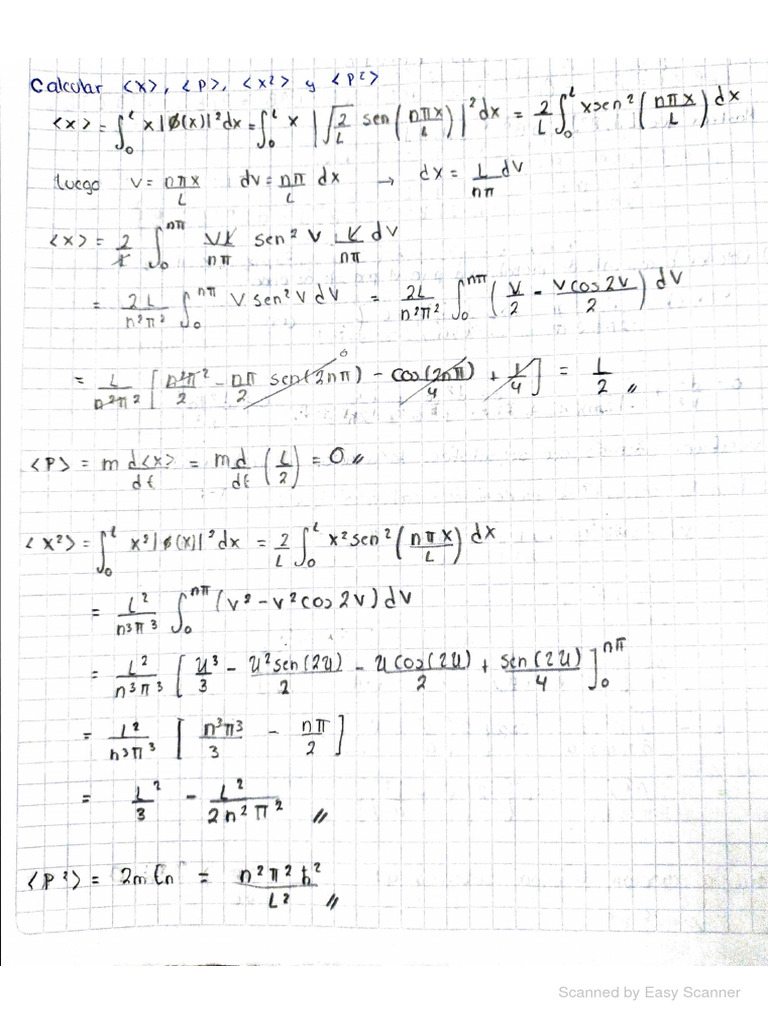 Calcular <x>, <p>, <x²> y <p²>
<x> = ∫₀ᴸ x|Ø(x)|²dx = ∫₀ᴸ x |√(2/L) sen(nπx/L)|² dx = 2/L ∫₀ᴸ x sen²(nπx/L) dx
luego v = nπx/L dv = nπ/L dx → dx = L/nπ dv
<x> = 2/L ∫₀ⁿᴨ vL/nπ sen² v L/nπ dv
= 2L/n²π² ∫₀ⁿᴨ v sen² v dv = 2L/n²π² ∫₀ⁿᴨ (v/2 - v cos 2v/2) dv
= L/n²π² [n²π²/2 - nπ/2 sen(2nπ) - cos(2nπ)/4 + 1/4] = L/2 //
0
<p> = m d<x>/dt = m d/dt (L/2) = 0 //
<x²> = ∫₀ᴸ x²|ø(x)|²dx = 2/L ∫₀ᴸ x² sen²(nπx/L) dx
= L²/n³π³ ∫₀ⁿᴨ (v² - v² cos 2v) dv
= L²/n³π³ [u³/3 - u² sen(2u)/2 - u cos(2u)/2 + sen(2u)/4]₀ⁿᴨ
= L²/n³π³ [n³π³/3 - nπ/2]
= L²/3 - L²/2n²π² //
<p²> = 2mEn = n²π²ħ²/L² //
Scanned by Easy Scanner